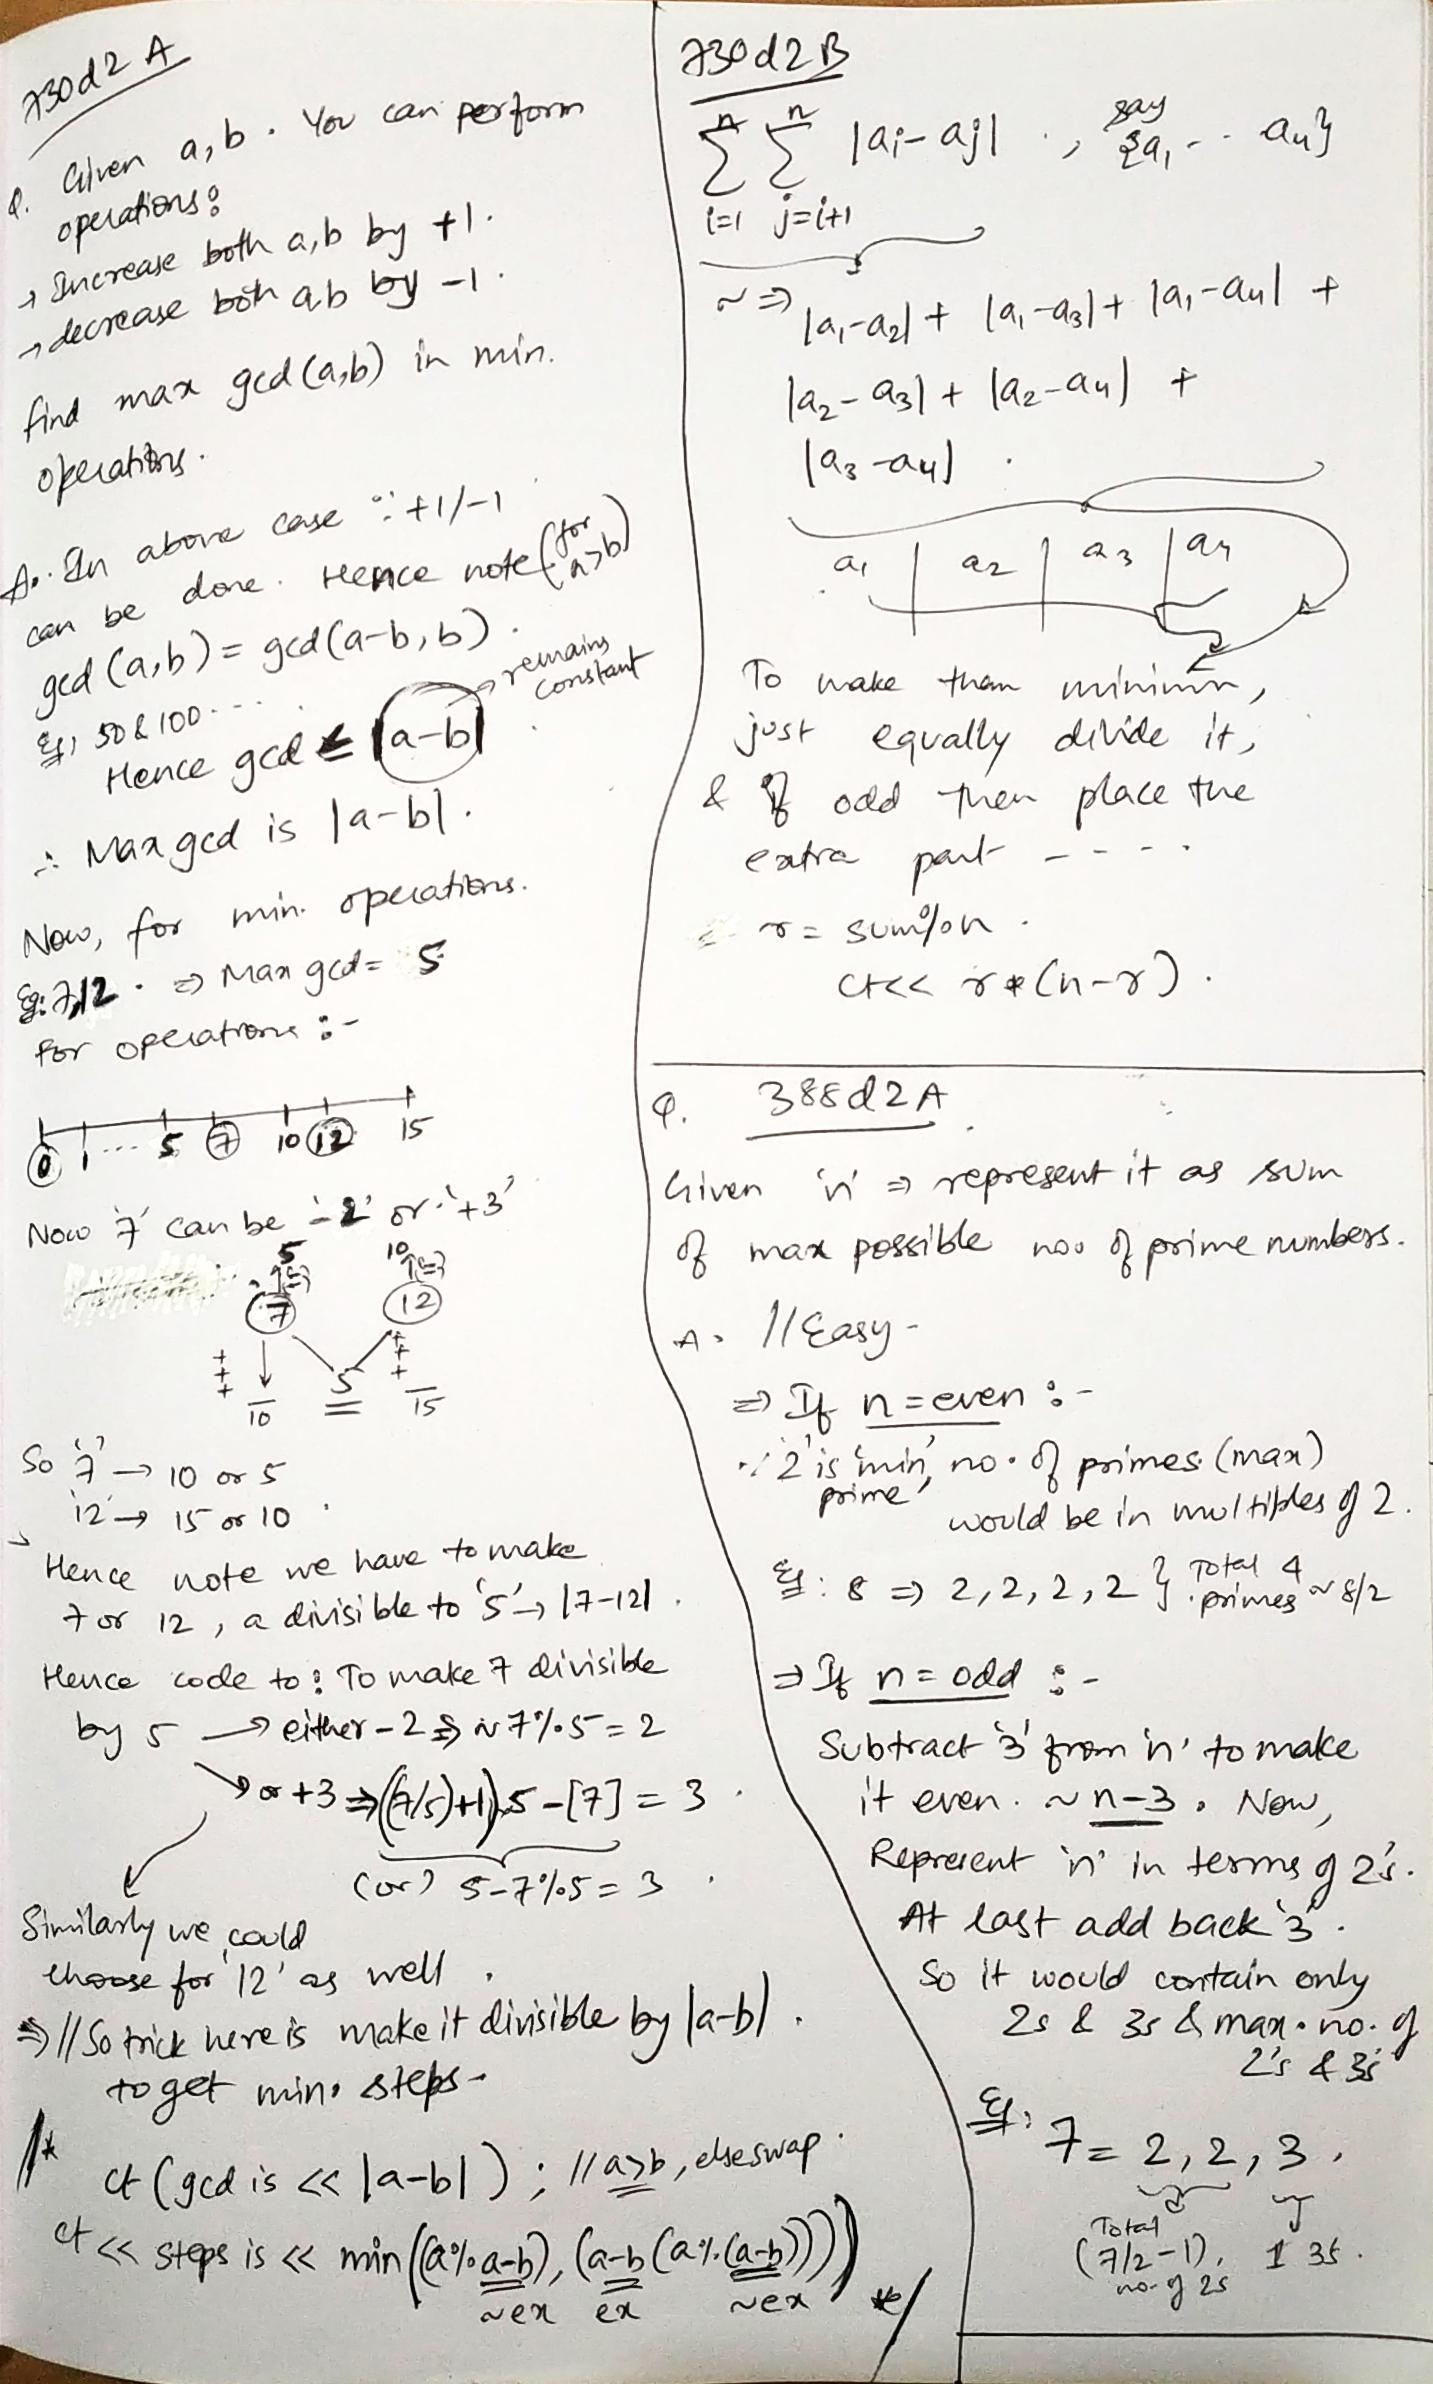 730d2 A
Q. Given a,b. You can perform
operations:
→ Increase both a,b by +1.
→ decrease both ab by -1.
find max gcd(a,b) in min.
operations.
A. In above case ∵ +1/-1
can be done. Hence note (for a>b)
gcd (a,b) = gcd(a-b,b).
Eg, 50 & 100 ....
Hence gcd ≤ |a-b| → remains constant
∴ Max gcd is |a-b|.
Now, for min. operations.
Eg: 7,12. ⇒ Max gcd = 5
for operations :-
0 1 .... 5 7 10 12 15
Now '7' can be '-2' or '+3'
5 10
7 12
+++ 5 +++
10 15
So '7' → 10 or 5
'12' → 15 or 10.
Hence note we have to make
7 or 12, a divisible to '5' → |7-12|.
Hence code to: To make 7 divisible
by 5 → either -2 ⇒ ~ 7%5 = 2
→ or +3 ⇒ ((7/5)+1)5 - [7] = 3.
(or) 5-7%5 = 3.
Similarly we could
choose for '12' as well.
⇒ // So trick here is make it divisible by |a-b|.
to get min. steps.
/* ct (gcd is << |a-b|); // a>b, else swap.
ct << steps is << min((a%a-b), (a-b(a%(a-b)))) */
~ex ex ~ex
730d2B
n n
∑ ∑ |ai-aj| , say {a1 - - a4}
i=1 j=i+1
~ ⇒ |a1-a2| + |a1-a3| + |a1-a4| +
|a2-a3| + |a2-a4| +
|a3-a4| .
a1 | a2 | a3 | a4
To make them minimm,
just equally divide it,
& if odd then place the
extra part - - - -.
r = sum%n.
ct<< r*(n-r).
Q. 388d2A
Given 'n' ⇒ represent it as sum
of max possible no. of prime numbers.
A. // Easy-
⇒ If n = even :-
∵ '2' is 'min' prime, no. of primes (max)
would be in multiples of 2.
Eg: 8 ⇒ 2, 2, 2, 2 } Total 4 primes ~ 8/2
⇒ If n = odd :-
Subtract '3' from 'n' to make
it even. ~ n-3. Now,
Represent 'n' in terms of 2's.
At last add back '3'.
So it would contain only
2s & 3s & max. no. of
2's & 3s
Eg: 7 = 2, 2, 3.
Total
(7/2-1), 1 3s.
no. of 2s